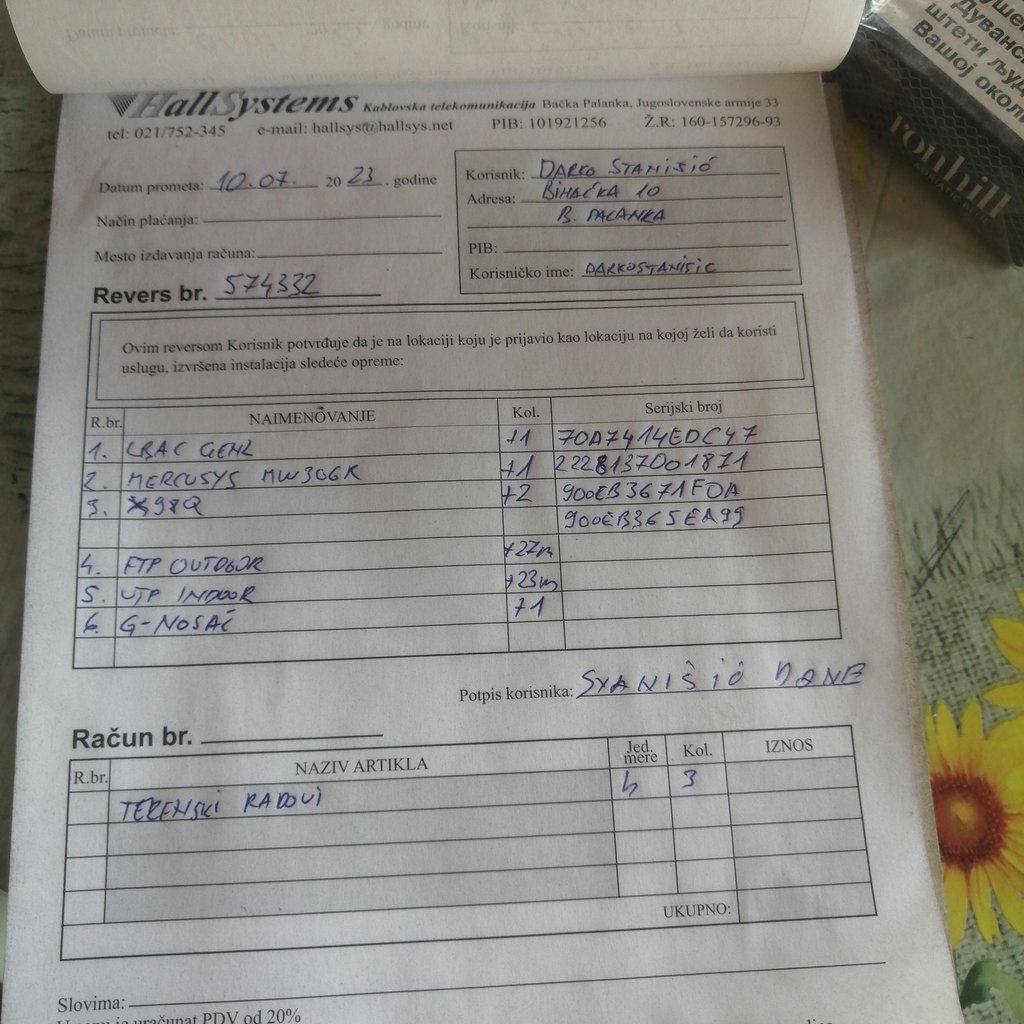 уше
Дуванс
штети људ
Вашој окол
ronhill
HallSystems Kablovska telekomunikacija Bačka Palanka, Jugoslovenske armije 33
tel: 021/752-345 e-mail: hallsys@hallsys.net PIB: 101921256 Ž.R: 160-157296-93
Datum prometa: 10.07. 20 23. godine
Način plaćanja:
Mesto izdavanja računa:
Revers br. 574332
Korisnik: DARKO STANIŠIĆ
Adresa: BIHAĆKA 10
B. PALANKA
PIB:
Korisničko ime: DARKOSTANISIC
Ovim reversom Korisnik potvrđuje da je na lokaciji koju je prijavio kao lokaciju na kojoj želi da koristi
uslugu, izvršena instalacija sledeće opreme:
R.br. NAIMENOVANJE Kol. Serijski broj
1. LBAC GEN2 +1 70A7414EDC47
2. MERCUSYS MW306R +1 2228137001871
3. X98Q +2 900EB3671FDA
900EB365EA99
4. FTP OUTDOOR +27m
5. UTP INDOOR +23m
6. G-NOSAČ +1
Potpis korisnika: STANIŠIĆ DANE
Račun br.
R.br. NAZIV ARTIKLA Jed. mere Kol. IZNOS
TERENSKI RADOVI h 3
UKUPNO:
Slovima:
U cenu je uračunat PDV od 20%